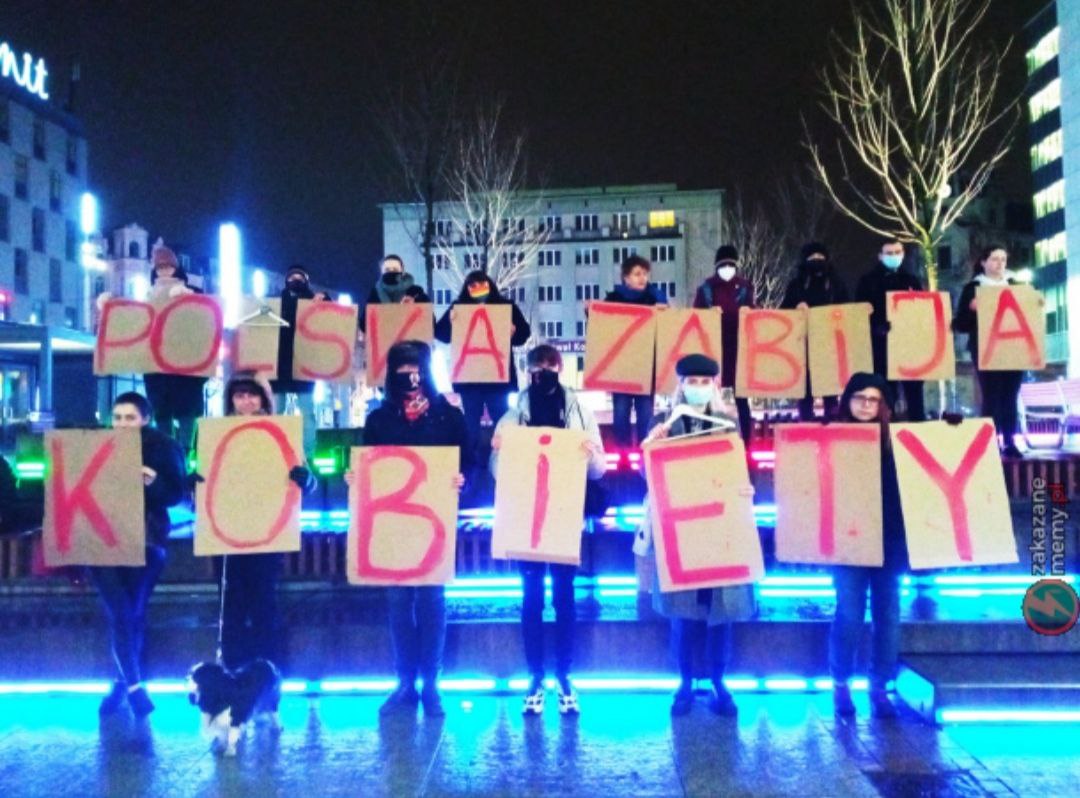 nit
POLSKA ZABiJA
KOBiETY
zakazane
memy.pl